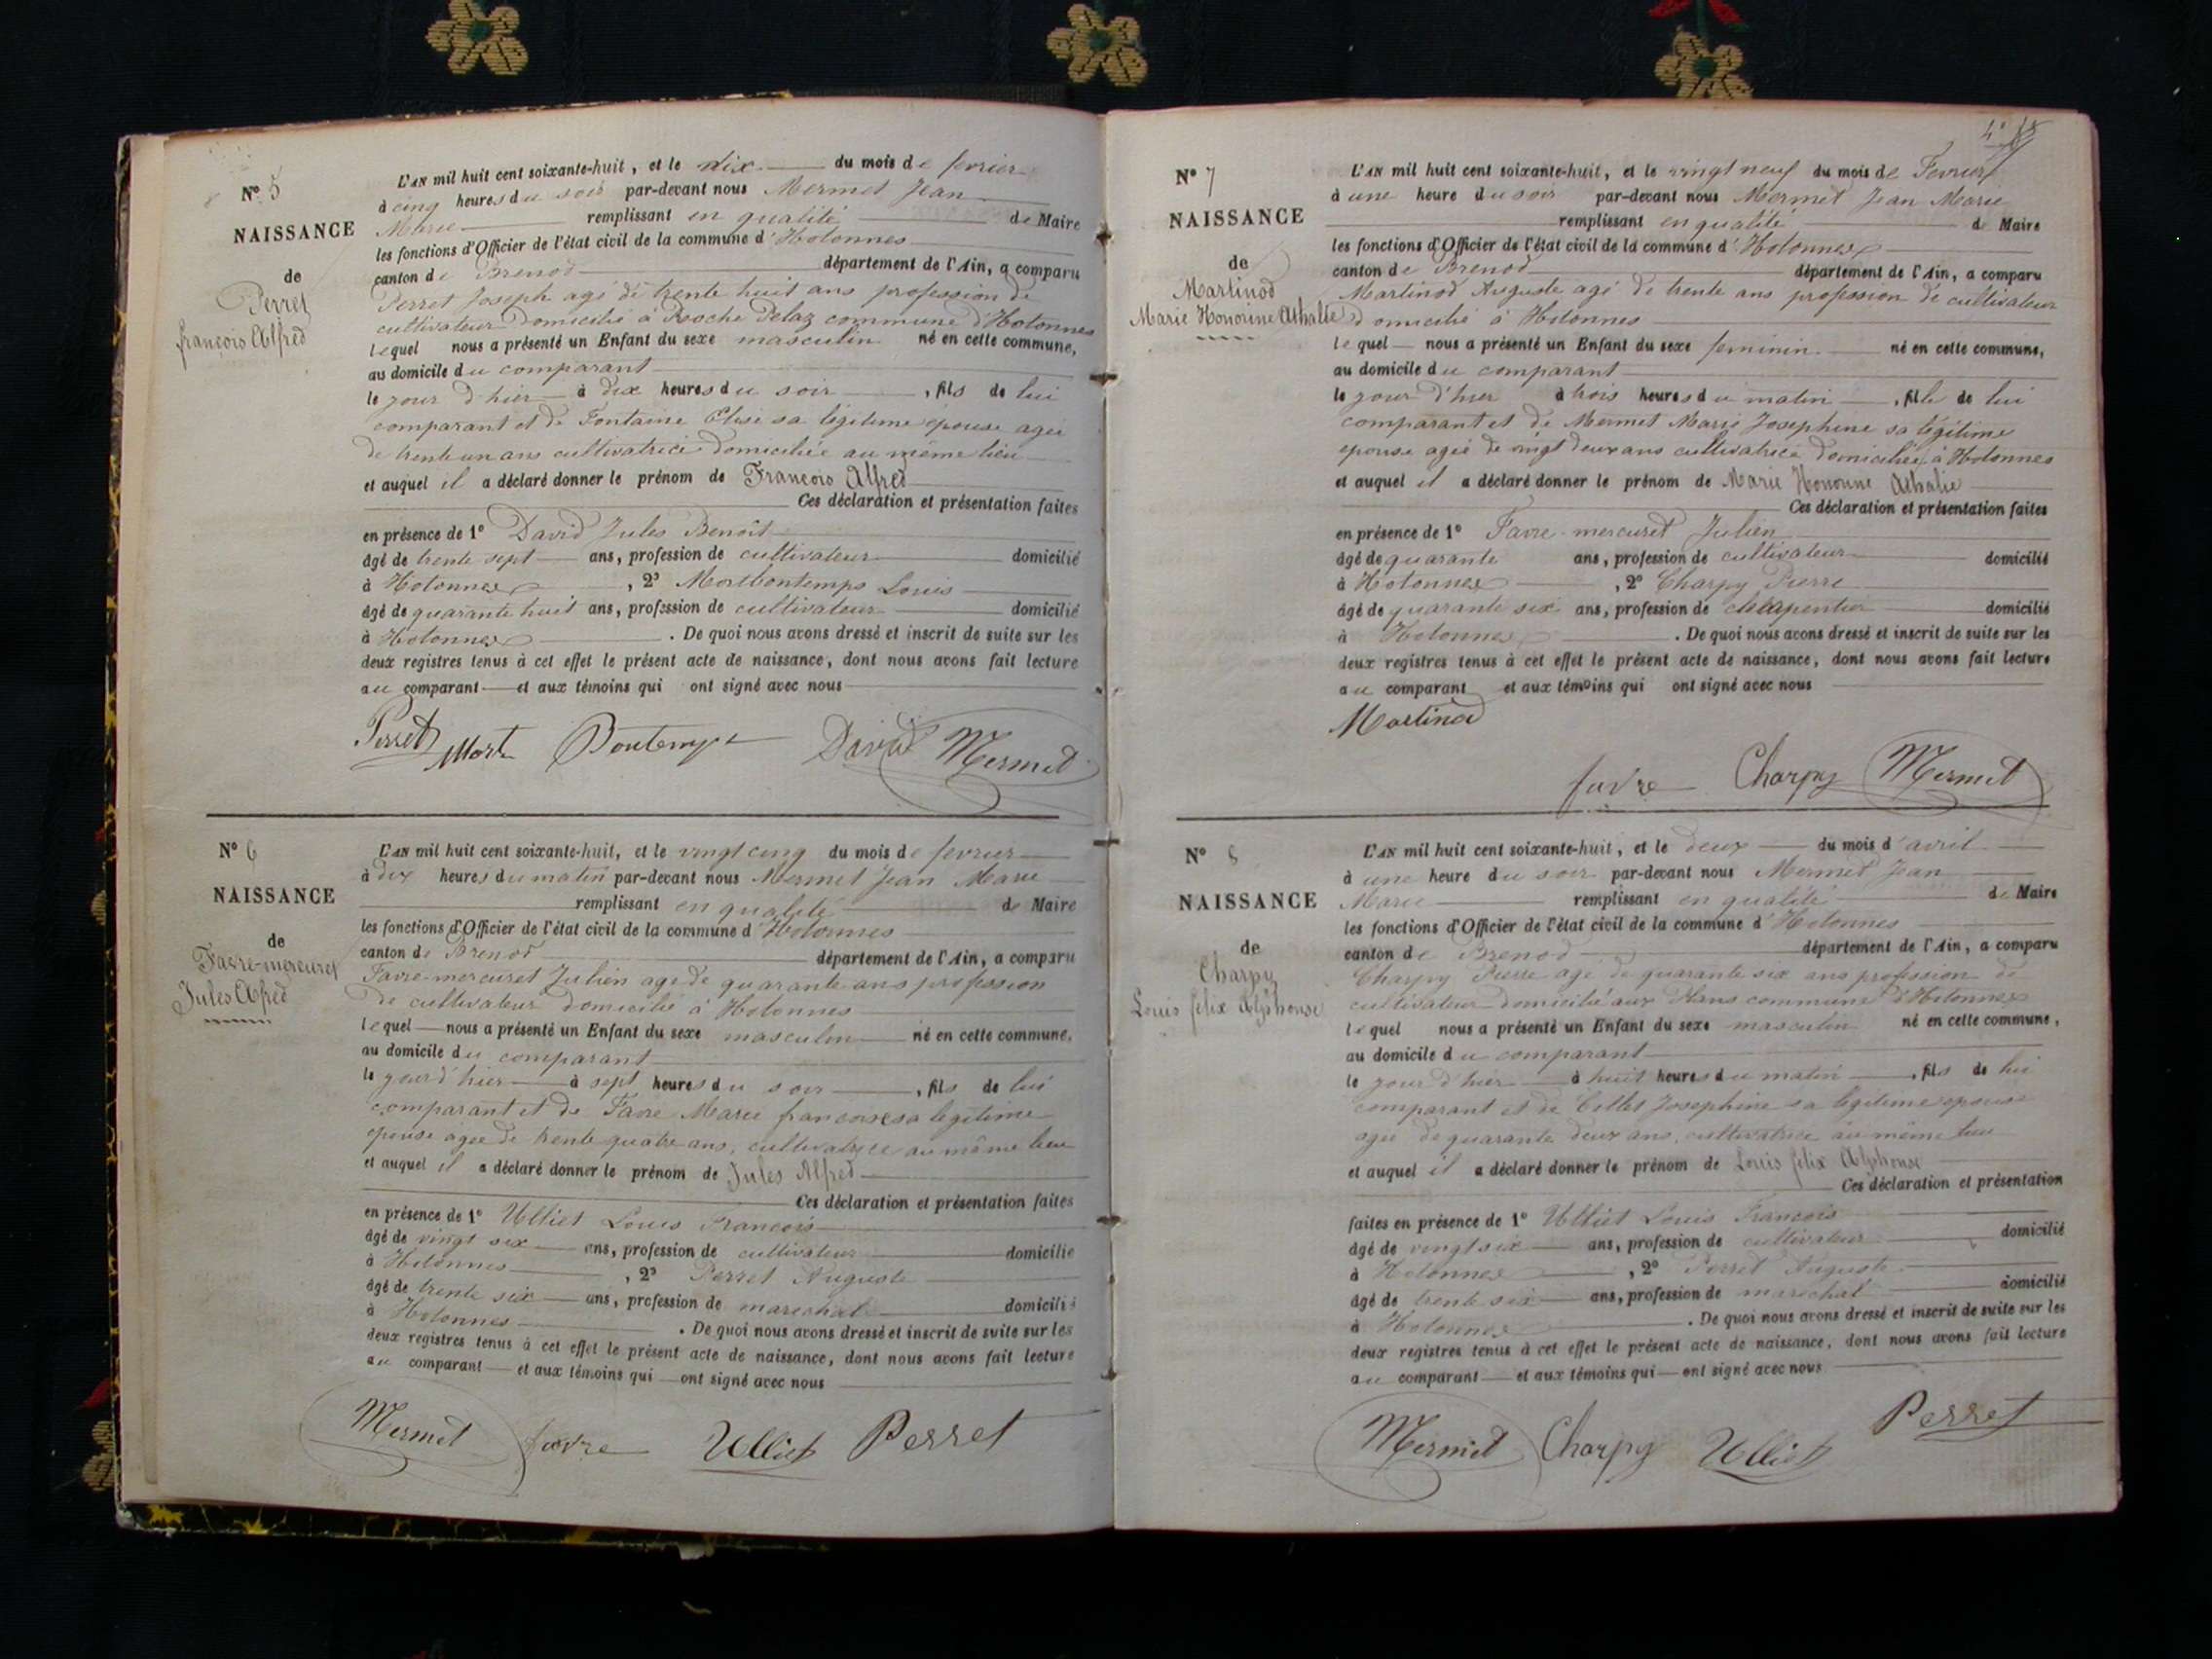 N° 5
NAISSANCE
de
Perret
françois Alfred
L'AN mil huit cent soixante-huit, et le dix du mois de fevrier
à cinq heures du soir par-devant nous Mermet Jean
Marie remplissant en qualité de Maire
les fonctions d'Officier de l'état civil de la commune d'Hotonnes
canton de Brenod département de l'Ain, a comparu
Perret Joseph agé de trente huit ans profession de
cultivateur domicilié à Roche Pelaz commune d'Hotonnes
lequel nous a présenté un Enfant du sexe masculin né en cette commune,
au domicile du comparant
le jour d'hier à dix heures du soir, fils de lui
comparant et de Fontaine Elise sa légitime épouse agée
de trente un ans cultivatrice domiciliée au même lieu
et auquel il a déclaré donner le prénom de François Alfred
Ces déclaration et présentation faites
en présence de 1° David Jules Benoît
âgé de trente sept ans, profession de cultivateur domicilié
à Hotonnes, 2° Mortbontemps Louis
âgé de quarante huit ans, profession de cultivateur domicilié
à Hotonnes. De quoi nous avons dressé et inscrit de suite sur les
deux registres tenus à cet effet le présent acte de naissance, dont nous avons fait lecture
au comparant et aux témoins qui ont signé avec nous
Perret Mort Bontemps David Mermet
N° 6
NAISSANCE
de
Favre-mercuret
Jules Alfred
L'AN mil huit cent soixante-huit, et le vingt cinq du mois de fevrier
à dix heures du matin par-devant nous Mermet Jean Marie
remplissant en qualité de Maire
les fonctions d'Officier de l'état civil de la commune d'Hotonnes
canton de Brenod département de l'Ain, a comparu
Favre-mercuret Julien age de quarante ans profession
de cultivateur domicilié à Hotonnes
lequel nous a présenté un Enfant du sexe masculin né en cette commune,
au domicile du comparant
le jour d'hier à sept heures du soir, fils de lui
comparant et de Favre Marie françoise sa legitime
epouse agée de trente quatre ans, cultivatrice au même lieu
et auquel il a déclaré donner le prénom de Jules Alfred
Ces déclaration et présentation faites
en présence de 1° Ulliet Louis François
âgé de vingt six ans, profession de cultivateur domicilié
à Hotonnes, 2° Perret Auguste
âgé de trente six ans, profession de marechal domicilié
à Hotonnes. De quoi nous avons dressé et inscrit de suite sur les
deux registres tenus à cet effet le présent acte de naissance, dont nous avons fait lecture
au comparant et aux témoins qui ont signé avec nous
Mermet favre Ulliet Perret
N° 7
NAISSANCE
de
Martinod
Marie Honorine Athalie
L'AN mil huit cent soixante-huit, et le vingt neuf du mois de Fevrier
à une heure du soir par-devant nous Mermet Jean Marie
remplissant en qualité de Maire
les fonctions d'Officier de l'état civil de la commune d'Hotonnes
canton de Brenod département de l'Ain, a comparu
Martinod Auguste agé de trente ans profession de cultivateur
domicilié à Hotonnes
lequel nous a présenté un Enfant du sexe feminin né en cette commune,
au domicile du comparant
le jour d'hier à trois heures du matin, fille de lui
comparant et de Mermet Marie Josephine sa légitime
epouse agée de vingt deux ans cultivatrice domiciliée à Hotonnes
et auquel il a déclaré donner le prénom de Marie Honorine Athalie
Ces déclaration et présentation faites
en présence de 1° Favre-mercuret Julien
âgé de quarante ans, profession de cultivateur domicilié
à Hotonnes, 2° Charpy Pierre
âgé de quarante six ans, profession de charpentier domicilié
à Hotonnes. De quoi nous avons dressé et inscrit de suite sur les
deux registres tenus à cet effet le présent acte de naissance, dont nous avons fait lecture
au comparant et aux témoins qui ont signé avec nous
Martinod
favre Charpy Mermet
N° 8
NAISSANCE
de
Charpy
Louis felix Alphonse
L'AN mil huit cent soixante-huit, et le deux du mois d'avril
à une heure du soir par-devant nous Mermet Jean
Marie remplissant en qualité de Maire
les fonctions d'Officier de l'état civil de la commune d'Hotonnes
canton de Brenod département de l'Ain, a comparu
Charpy Pierre agé de quarante six ans profession de
cultivateur domicilié aux Plans commune d'Hotonnes
lequel nous a présenté un Enfant du sexe masculin né en cette commune,
au domicile du comparant
le jour d'hier à huit heures du matin, fils de lui
comparant et de Billet Josephine sa légitime epouse
agée de quarante deux ans, cultivatrice au même lieu
et auquel il a déclaré donner le prénom de Louis felix Alphonse
Ces déclaration et présentation
faites en présence de 1° Ulliet Louis François
âgé de vingt six ans, profession de cultivateur domicilié
à Hotonnes, 2° Perret Auguste
âgé de trente six ans, profession de maréchal domicilié
à Hotonnes. De quoi nous avons dressé et inscrit de suite sur les
deux registres tenus à cet effet le présent acte de naissance, dont nous avons fait lecture
au comparant et aux témoins qui ont signé avec nous
Mermet Charpy Ulliet Perret